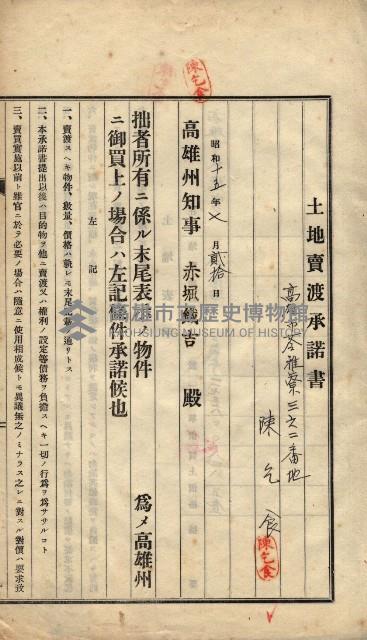 土地賣渡承諾書
高雄市苓雅寮三六二番地
陳乞食
陳乞食
昭和十五年七月貳拾日
高雄州知事 赤堀鐵吉 殿
拙者所有ニ係ル末尾表示ノ物件 為メ高雄州
ニ御買上ノ場合ハ左記條件承諾候也
左記
一、賣渡スヘキ物件、數量、價格ハ凡レモ末尾記載ノ通リトス
二、本承諾書提出以後ハ目的物ヲ他ニ賣渡又ハ權利ノ設定等債務ヲ負擔スヘキ一切ノ行為ヲ為ササルコト
三、賣買實施以前ト雖官ニ於テ必要ノ場合ハ隨意ニ使用相成候トモ異議無之ノミナラス之レニ對スル對價ハ要求致
陳乞食
高雄市立歷史博物館
KAOHSIUNG MUSEUM OF HISTORY